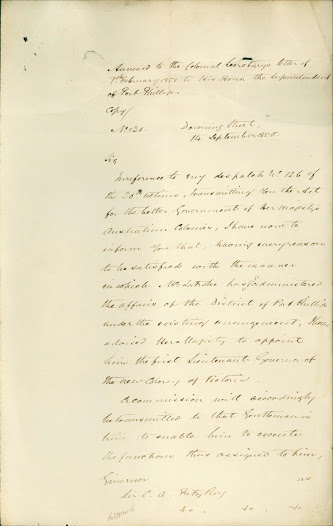 Annexed to the Colonial Secretary's letter of
7th February 1851 to His Honor the Superintendent
of Port Phillip.
Copy
No 131
Downing Street,
14 September 1850.
Sir,
In reference to my despatch No 126 of
the 30th ultimo, transmitting you the Act
for the better Government of Her Majesty's
Australian Colonies, I have now to
inform you that, having every reason
to be satisfied with the manner
in which Mr La Trobe has administered
the affairs of the District of Port Phillip
under the existing arrangement, I have
advised Her Majesty to appoint
him the first Lieutenant Governor of
the new Colony of Victoria.
A commission will accordingly
be transmitted to that Gentleman in
time to enable him to execute
the functions thus assigned to him,
Governor
Sir C. A. FitzRoy